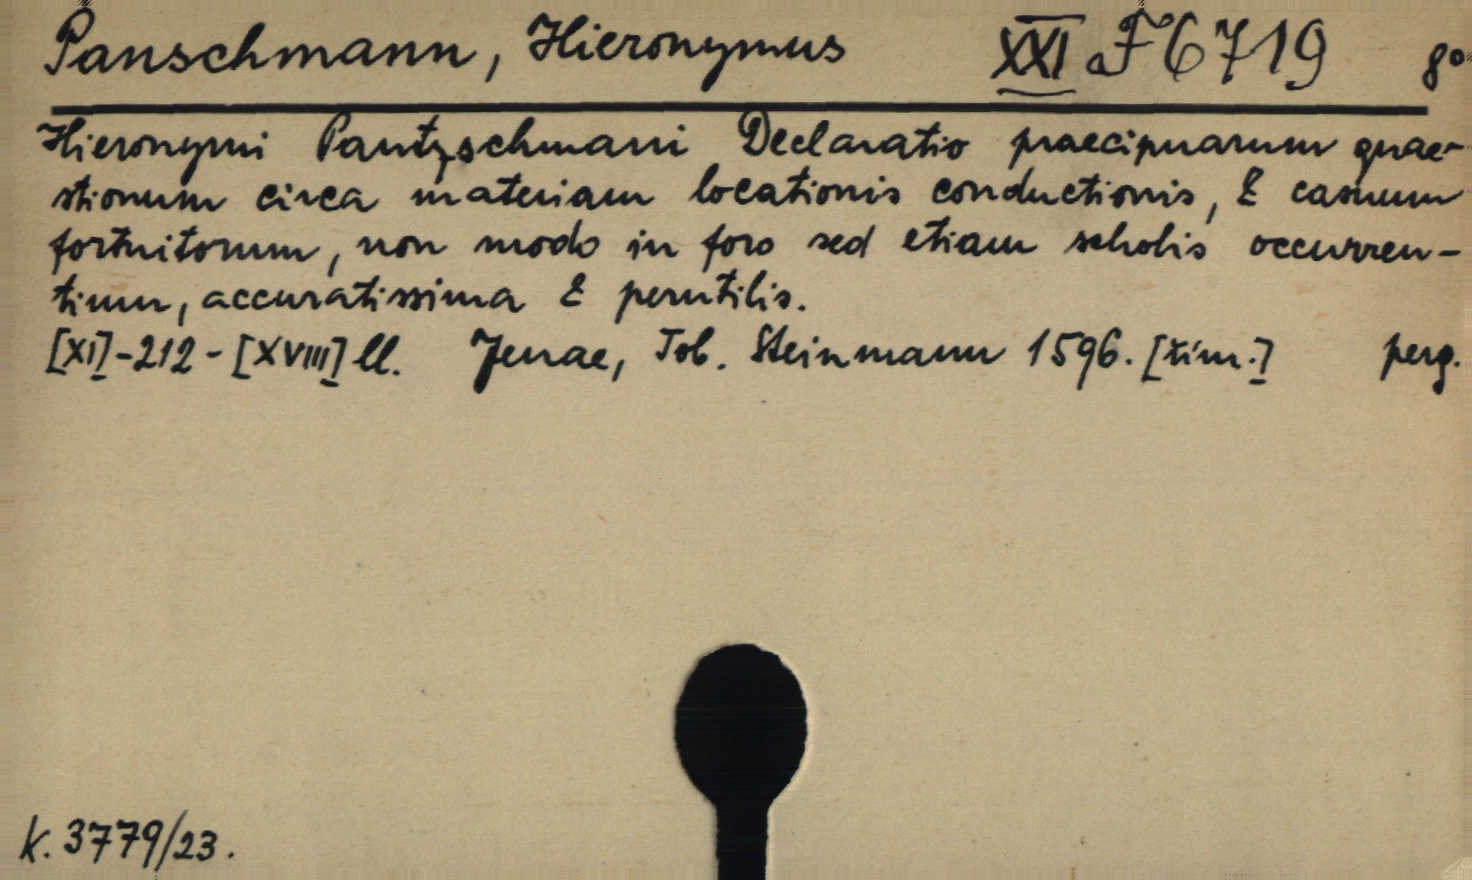 Panschmann, Hieronymus XXI F 6719 8°
Hieronymi Pantzschmani Declaratio praecipuarum quae-
stionum circa materiam locationis conductionis, & casuum
fortuitorum, non modo in foro sed etiam scholis occurren-
tium, accuratissima & perutilis.
[XI]-212-[XVIII] ll. Jenae, Tob. Steinmann 1596. [kim.] perg.
K. 3779/23.